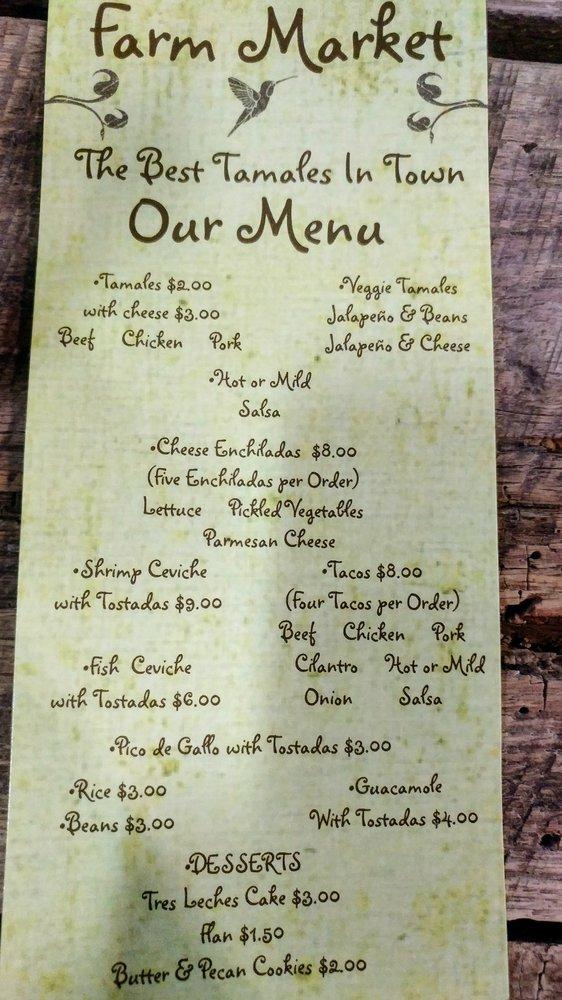 Farm Market
The Best Tamales In Town
Our Menu
•Tamales $2.00
with cheese $3.00
Beef Chicken Pork
•Veggie Tamales
Jalapeño & Beans
Jalapeño & Cheese
•Hot or Mild
Salsa
•Cheese Enchiladas $8.00
(Five Enchiladas per Order)
Lettuce Pickled Vegetables
Parmesan Cheese
•Shrimp Ceviche
with Tostadas $9.00
•Tacos $8.00
(Four Tacos per Order)
Beef Chicken Pork
Cilantro Hot or Mild
Onion Salsa
•Fish Ceviche
with Tostadas $6.00
•Pico de Gallo with Tostadas $3.00
•Rice $3.00
•Beans $3.00
•Guacamole
With Tostadas $4.00
•DESSERTS
Tres Leches Cake $3.00
Flan $1.50
Butter & Pecan Cookies $2.00